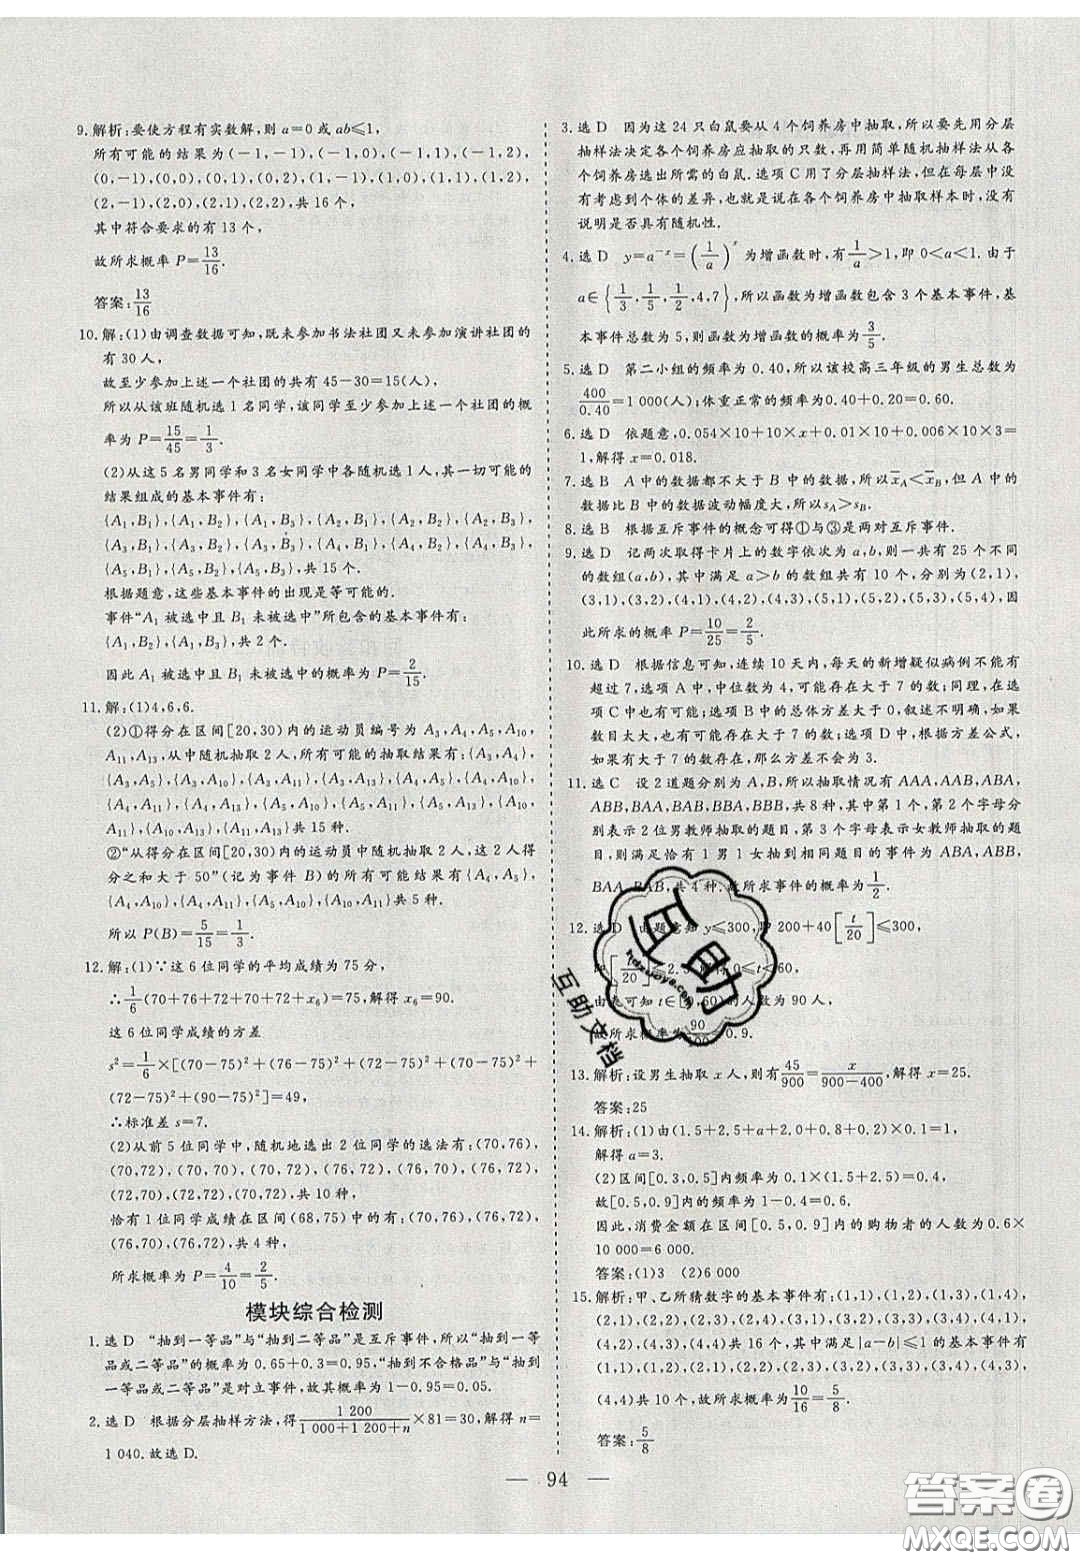 9.解析:要使方程有实数解,则 a=0或ab⩽1,
所有可能的结果为(-1,-1),(-1,0),(-1,1),(-1,2),
(0,-1),(0,0),(0,1),(0,2),(1,-1),(1,0),(1,1),(1,2),
(2,-1),(2,0),(2,1),(2,2),共 16 个,
其中符合要求的有 13 个,
故所求概率 P=13/16.
答案:13/16
10.解:(1)由调查数据可知,既未参加书法社团又未参加演讲社团的
有 30 人,
故至少参加上述一个社团的共有 45-30=15(人),
所以从该班随机选 1 名同学,该同学至少参加上述一个社团的概
率为 P=15/45=1/3.
(2)从这 5 名男同学和 3 名女同学中各随机选 1 人,其一切可能的
结果组成的基本事件有:
{A₁,B₁},{A₁,B₂},{A₁,B₃},{A₂,B₁},{A₂,B₂},{A₂,B₃},
{A₃,B₁},{A₃,B₂},{A₃,B₃},{A₄,B₁},{A₄,B₂},{A₄,B₃},
{A₅,B₁},{A₅,B₂},{A₅,B₃},共 15 个.
根据题意,这些基本事件的出现是等可能的.
事件“A₁ 被选中且 B₁ 未被选中”所包含的基本事件有:
{A₁,B₂},{A₁,B₃},共 2 个.
因此 A₁ 被选中且 B₁ 未被选中的概率为 P=2/15.
11.解:(1)4,6,6.
(2)①得分在区间[20,30)内的运动员编号为 A₃,A₄,A₅,A₁₀,
A₁₁,A₁₃,从中随机抽取 2 人;所有可能的抽取结果有:{A₃,A₄},
{A₃,A₅},{A₃,A₁₀},{A₃,A₁₁},{A₃,A₁₃},{A₄,A₅},{A₄,
A₁₀},{A₄,A₁₁},{A₄,A₁₃},{A₅,A₁₀},{A₅,A₁₁},{A₅,A₁₃},{A₁₀,
A₁₁},{A₁₀,A₁₃},{A₁₁,A₁₃}共 15 种.
②“从得分在区间[20,30)内的运动员中随机抽取 2 人,这 2 人得
分之和大于 50”(记为事件 B)的所有可能结果有{A₄,A₅},{A₄,
A₁₀},{A₄,A₁₁},{A₅,A₁₀},{A₁₀,A₁₁}共 5 种.
所以 P(B)=5/15=1/3.
12.解:(1)∵这 6 位同学的平均成绩为 75 分,
∴1/6(70+76+72+70+72+x₆)=75,解得 x₆=90.
这 6 位同学成绩的方差
s²=1/6×[(70-75)²+(76-75)²+(72-75)²+(70-75)²+
(72-75)²+(90-75)²]=49,
∴标准差 s=7.
(2)从前 5 位同学中,随机地选出 2 位同学的选法有:(70,76),
(70,72),(70,70),(70,72),(76,72),(76,70),(76,72),
(72,70),(72,72),(70,72),共 10 种,
恰有 1 位同学成绩在区间(68,75)中的有:(70,76),(76,72),
(76,70),(76,72),共 4 种,
所求概率为 P=4/10=2/5.
模块综合检测
1.选 D “抽到一等品”与“抽到二等品”是互斥事件,所以“抽到一等
品或二等品”的概率为 0.65+0.3=0.95,“抽到不合格品”与“抽到
一等品或二等品”是对立事件,故其概率为 1-0.95=0.05.
2.选 D 根据分层抽样方法,得 1 200/(1 000+1 200+n)×81=30,解得 n=
1 040.故选 D.
3.选 D 因为这 24 只白鼠要从 4 个饲养房中抽取,所以要先用分层
抽样法决定各个饲养房应抽取的只数,再用简单随机抽样法从各
个饲养房选出所需的白鼠.选项 C 用了分层抽样法,但在每层中没
有考虑到个体的差异,也就是说在各个饲养房中抽取样本时,没有
说明是否具有随机性.
4.选 D y=a⁻ˣ=(1/a)ˣ为增函数时,有1/a>1,即 0<a<1.由于
a∈{1/3,1/5,1/2,4,7},所以函数为增函数包含 3 个基本事件,基
本事件总数为 5,则函数为增函数的概率为3/5.
5.选 D 第二小组的频率为 0.40,所以该校高三年级的男生总数为
400/0.40=1 000(人);体重正常的频率为0.40+0.20=0.60.
6.选 D 依题意,0.054×10+10×x+0.01×10+0.006×10×3=
1,解得 x=0.018.
7.选 B A 中的数据都不大于 B 中的数据,所以x̄_A<x̄_B,但 A 中的
数据比 B 中的数据波动幅度大,所以s_A>s_B.
8.选 B 根据互斥事件的概念可得①与③是两对互斥事件.
9.选 D 记两次取得卡片上的数字依次为 a,b,则一共有 25 个不同
的数组(a,b),其中满足 a>b 的数组共有 10 个,分别为(2,1),
(3,1),(3,2),(4,1),(4,2),(4,3),(5,1),(5,2),(5,3),(5,4),因
此所求的概率 P=10/25=2/5.
10.选 D 根据信息可知,连续 10 天内,每天的新增疑似病例不能有
超过 7,选项 A 中,中位数为 4,可能存在大于 7 的数;同理,在选
项 C 中也有可能;选项 B 中的总体方差大于 0,叙述不明确,如果
数目太大,也有可能存在大于 7 的数;选项 D 中,根据方差公式,
如果有大于 7 的数存在,那么方差不会为 3.
11.选 C 设 2 道题分别为 A,B,所以抽取情况有 AAA,AAB,ABA,
ABB,BAA,BAB,BBA,BBB,共 8 种,其中第 1 个,第 2 个字母分
别表示 2 位男教师抽取的题目,第 3 个字母表示女教师抽取的题
目,则满足恰有 1 男 1 女抽到相同题目的事件为 ABA,ABB,
BAA,BAB,共 4 种.故所求事件的概率为1/2.
12.选 D 由题意知 y⩽300,即 200+40[t/20]⩽300,
[t/20]⩽2.5,解得 0⩽t<60,
由表可知 t∈[0,60)的人数为 90 人,
故所求概率为 90/100=0.9.
13.解析:设男生抽取 x 人,则有45/900=x/(900-400),解得 x=25.
答案:25
14.解析:(1)由(1.5+2.5+a+2.0+0.8+0.2)×0.1=1,
解得 a=3.
(2)区间[0.3,0.5]内频率为 0.1×(1.5+2.5)=0.4,
故[0.5,0.9]内的频率为 1-0.4=0.6.
因此,消费金额在区间[0.5,0.9]内的购物者的人数为 0.6×
10 000=6 000.
答案:(1)3 (2)6 000
15.解析:甲、乙所猜数字的基本事件有:(1,1),(1,2),(1,3),(1,4),
(2,1),(2,2),(2,3),(2,4),(3,1),(3,2),(3,3),(3,4),(4,1),
(4,2),(4,3),(4,4)共 16 个,其中满足|a-b|⩽1 的基本事件有
(1,1),(1,2),(2,1),(2,2),(2,3),(3,2),(3,3),(3,4),(4,3),
(4,4)共 10 个,故所求概率为10/16=5/8.
答案:5/8
互助
hdzuoye.com
互助文档
— 94 —
答案圈
MXQE.COM